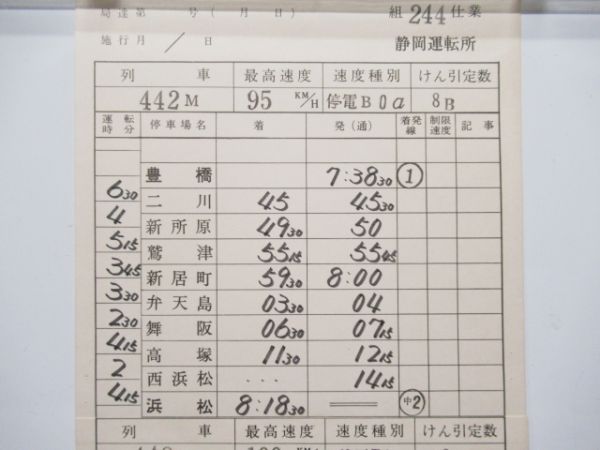 局達第 号( 月 日) 組 244 仕業
施行月 / 日 静岡運転所
列 車 最高速度 速度種別 けん引定数
442M 95 KM/H 停電B0a 8B
運転時分 停車場名 着 発(通) 着発線 制限速度 記事
豊橋 7:38 30 ①
6 30
二川 45 45 30
4
新所原 49 30 50
5 15
鷲津 55 15 55 45
3 45
新居町 59 30 8:00
3 30
弁天島 03 30 04
2 30
舞阪 06 30 07 15
4 15
高塚 11 30 12 15
2
西浜松 ... 14 15
4 15
浜松 8:18 30 中2
列 車 最高速度 速度種別 けん引定数